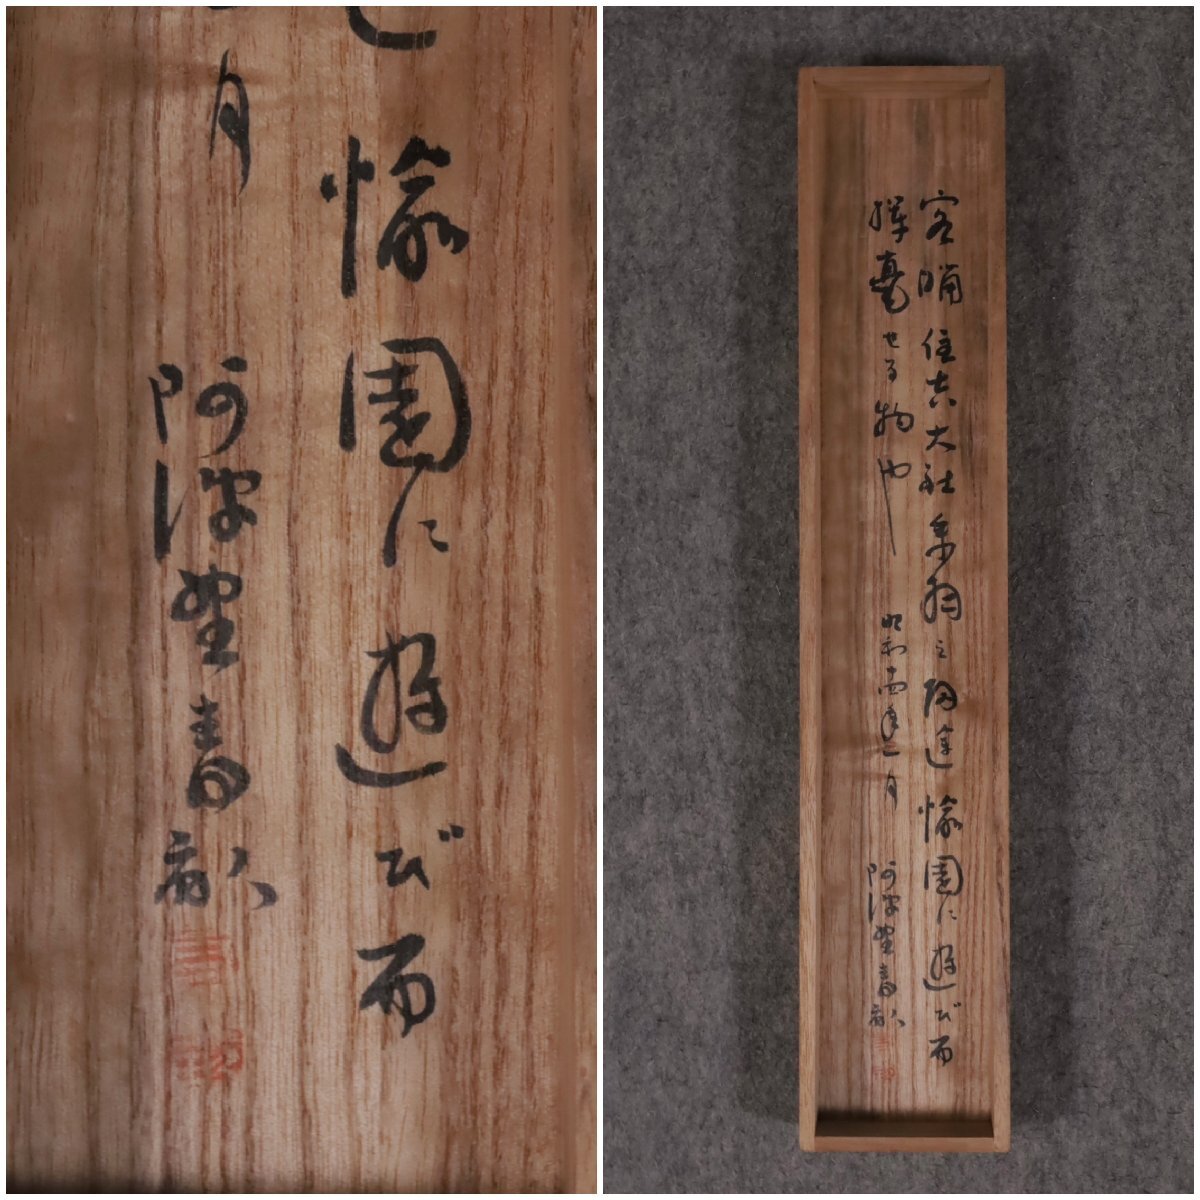 愉園に遊び而
月 阿波野青畝
住吉大社参之帰途愉園に遊び而
揮毫せる物也 昭和十四年二月 阿波野青畝